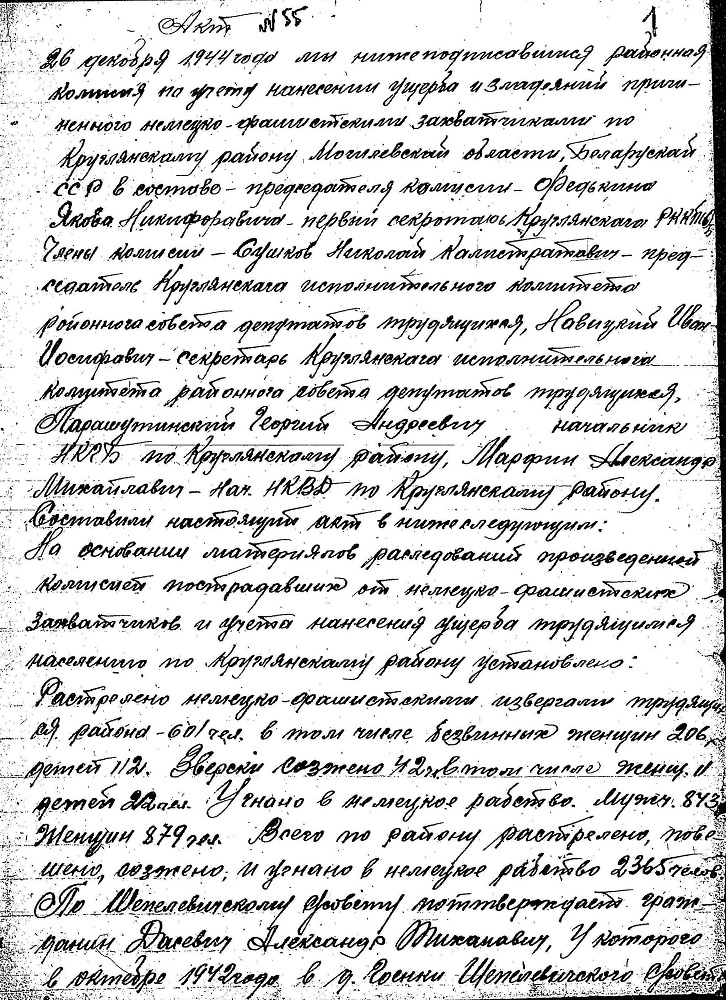 Акт №55
1
26 декабря 1944 года мы нижеподписавшися районная
комисия по учету нанесении ущерба и зладеяний причи-
ненного немецко-фашистскими захватчиками по
Круглянскаму району Могилевской области, Беларускай
ССР в составе - председателя камисии - Федькина
Якова Никифоравича - первый секротарь Круглянскага РККП(б)Б
Члены комисии - Сушков Николай Калистратович - пред-
седатель Круглянскага исполнительного комитета
районного совета депутатов трудящихся, Навицкий Иван
Иосифавич - секретарь Круглянскага исполнительнага
комитета районнога совета депутатов трудящихся,
Парашутинский Георгий Андреевич начальник
НКГБ по Круглянскаму району, Марфин Александр
Михайлавич - Нач. НКВД по Круглянскаму району.
Составили настоящий акт в нижеследующим:
На основании материялов раследований произведенной
комисией пострадавших от немецко-фашистских
захватчиков и учета нанесения ущерба трудящимся
населению по Круглянскаму району установлено:
Растрелено немецко-фашистскими извергами трудящих
ся района - 601 чел. в том числе безвинных женщин 206,
детей 112. Зверски созжено 42 ч. в том числе женщ. 11
детей 22 чел. Угнано в немецкое рабство. Мужч. 843
Женщин 879 чел. Всего по району растрелено, пове-
шено, созжено, и угнано в немецкое рабство 2365 челов.
По Шепелевичскому с/совету потверждает граж-
данин Дасевич Александр Тиханавич, У которого
в октебре 1942 года в д. Гоенки Шепелевичского с/совета